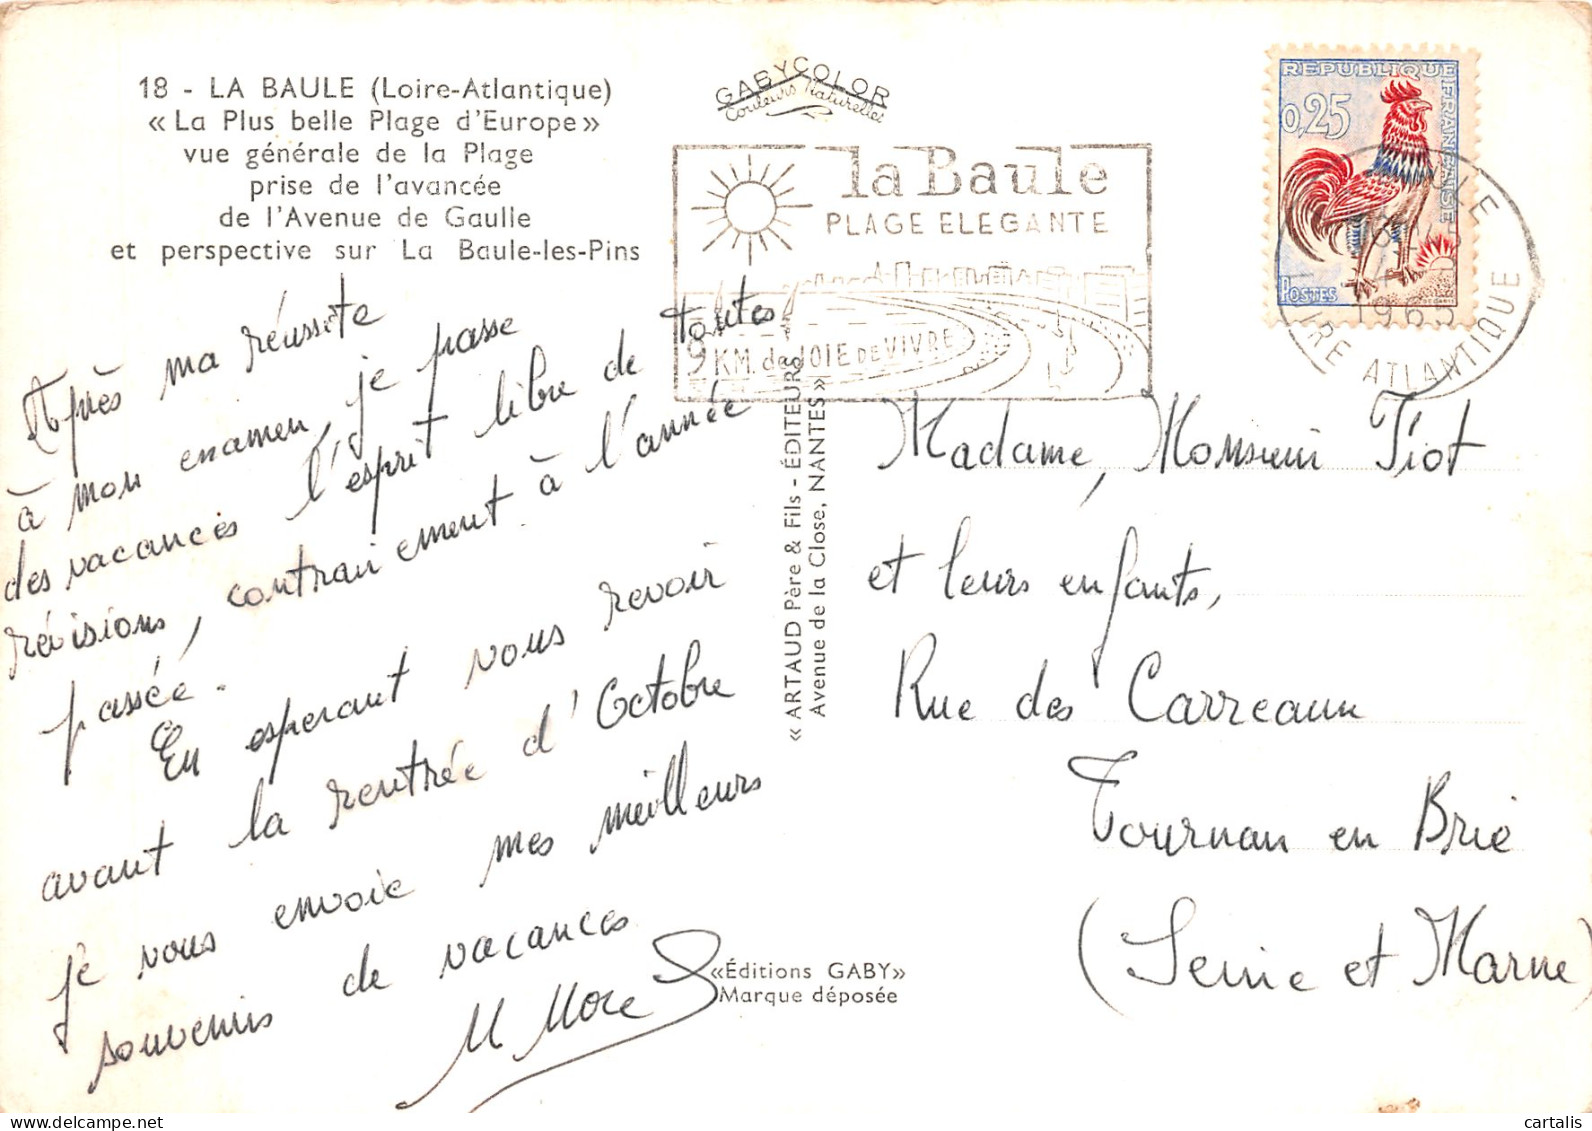 18 - LA BAULE (Loire-Atlantique)
« La Plus belle Plage d'Europe »
vue générale de la Plage
prise de l'avancée
de l'Avenue de Gaulle
et perspective sur La Baule-les-Pins
GABYCOLOR
Couleurs Naturelles
la Baule
PLAGE ELEGANTE
9 KM. de JOIE DE VIVRE
REPUBLIQUE FRANÇAISE
0,25
POSTES
BAULE
1965
LOIRE ATLANTIQUE
Après ma réussite
à mon examen, je passe
des vacances l'esprit libre de toutes
révisions, contrairement à l'année
passée.
En esperant vous revoir
avant la rentrée d'Octobre
je vous envoie mes meilleurs
souvenirs de vacances
« ARTAUD Père & Fils - ÉDITEURS
Avenue de la Close, NANTES »
Madame, Monsieur Tiot
et leurs enfants,
Rue des Carreaux
Tournan en Brie
(Seine et Marne)
«Éditions GABY»
Marque déposée
cartalis